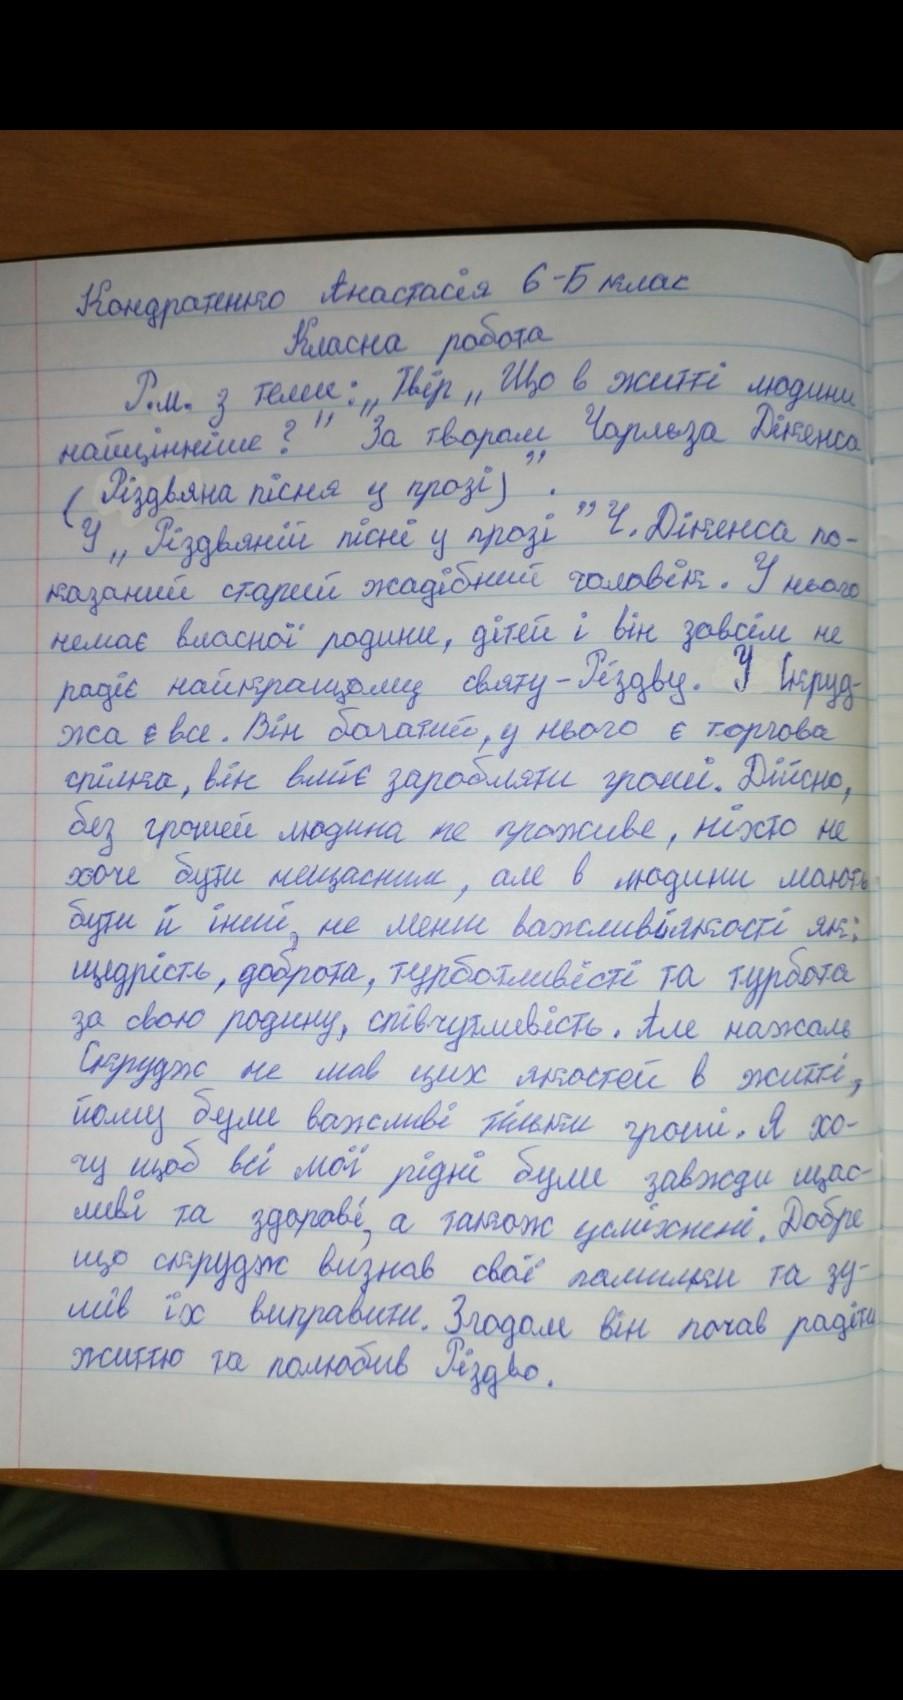 Кондратенко Анастасія 6-Б клас
Класна робота
Р.м. з теми: „Твір „Що в житті людини
найцінніше?" За твором Чарльза Дікенса
(Різдвяна пісня у прозі)".
У „Різдвяній пісні у прозі" Ч. Дікенса по-
казаний старий жадібний чоловік. У нього
немає власної родини, дітей і він зовсім не
радіє найкращому святу-Різдву. У Скруд-
жа є все. Він багатий, у нього є торгова
спілка, він вміє заробляти гроші. Дійсно,
без грошей людина не проживе, ніхто не
хоче бути нещасним, але в людини мають
бути й інші, не менш важливі якості як:
щедрість, доброта, турботливісті та турбота
за свою родину, співчутливість. Але нажаль
Скрудж не мав цих якостей в житті,
йому були важливі тільки гроші. Я хо-
чу щоб всі мої рідні були завжди щас-
ливі та здорові, а також усміхнені. Добре
що скрудж визнав свої помилки та зу-
мів їх виправити. Згодом він почав радіти
життю та полюбив Різдво.